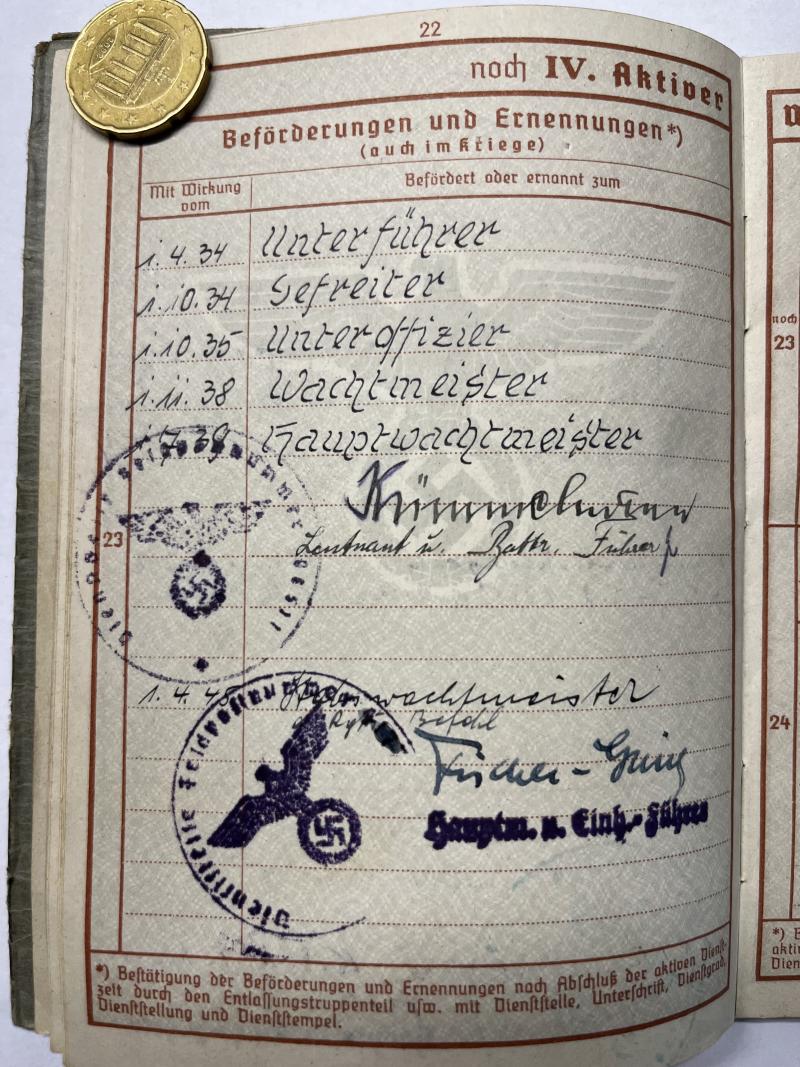 22
noch IV. Aktiver
Beförderungen und Ernennungen*)
(auch im Kriege)
Mit Wirkung vom
Befördert oder ernannt zum
1.4.34 Unterführer
1.10.34 Gefreiter
1.10.35 Unteroffizier
1.11.38 Wachtmeister
1.7.39 Hauptwachtmeister
23
Leutnant u. Battr. Führer
1.4.45 wachtmeister
Befehl
Fischer-
Hauptm. u. Einh.-Führer
Dienststelle Feldpostnummer
*) Bestätigung der Beförderungen und Ernennungen nach Abschluß der aktiven Dienst-
zeit durch den Entlassungstruppenteil usw. mit Dienststelle, Unterschrift, Dienstgrad,
Dienststellung und Dienststempel.
noch
23
24
*)